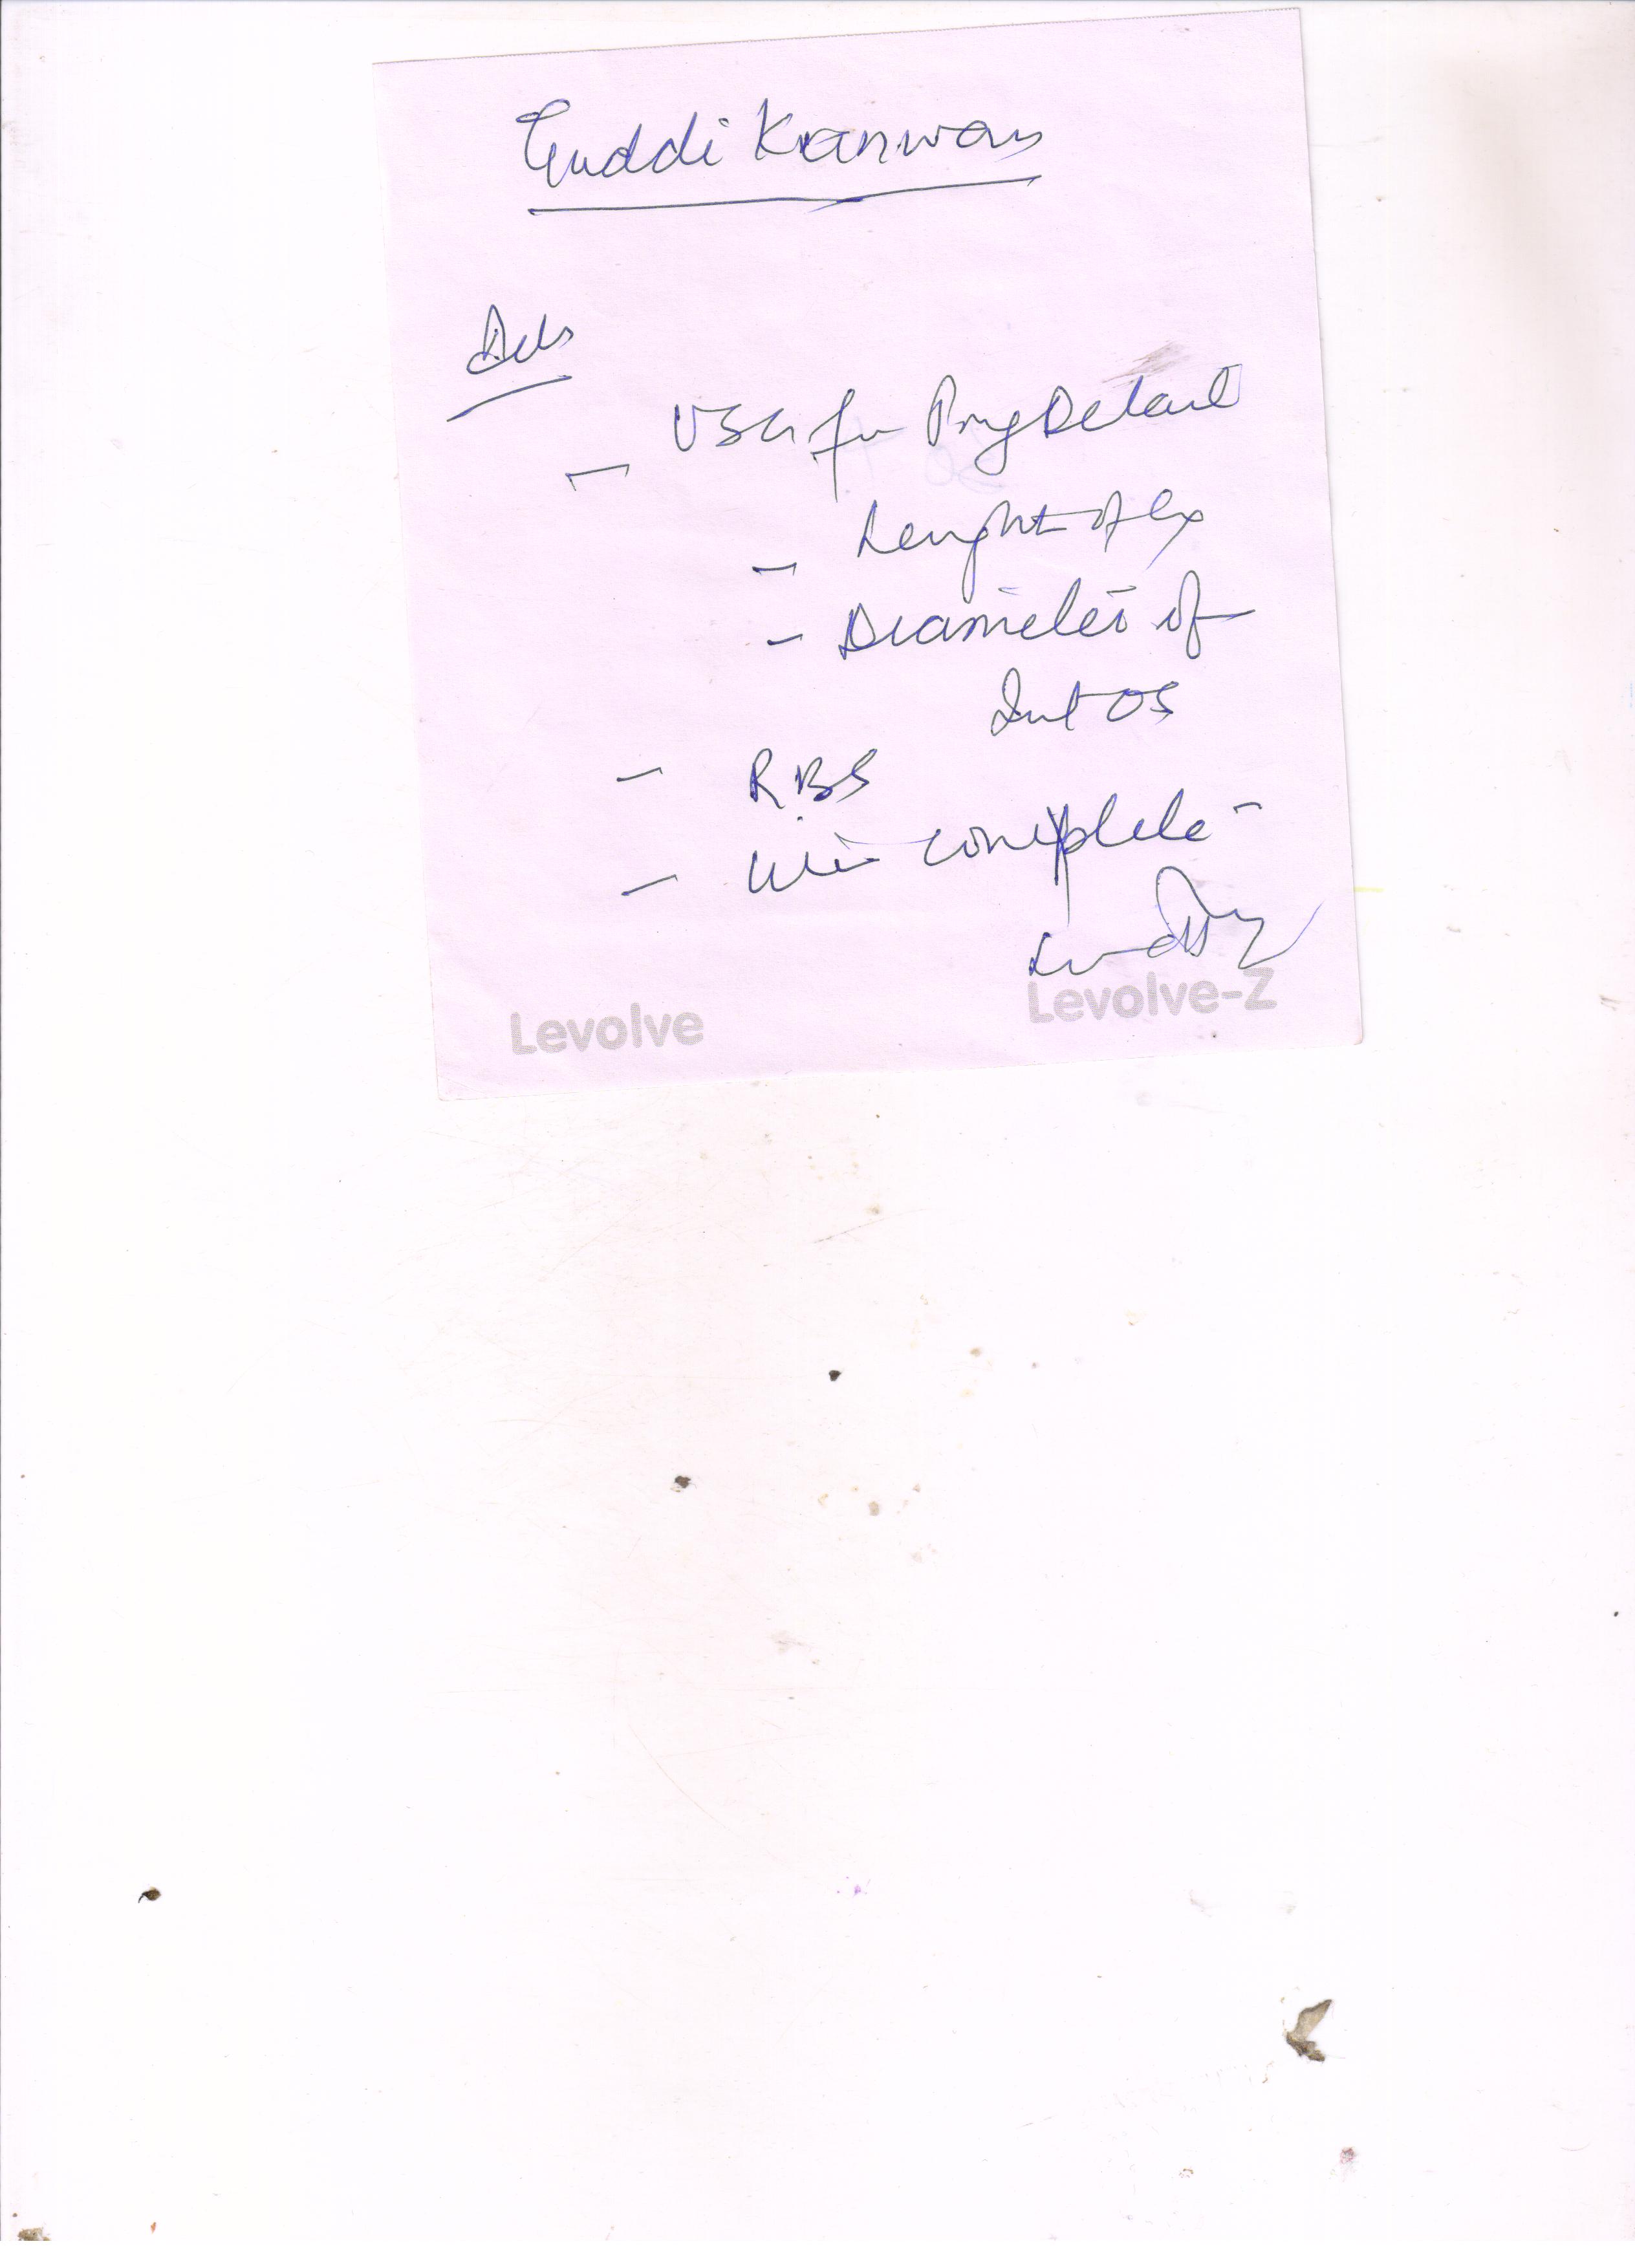 Guddi Kanwar
Adv
- USG for Preg Detail
- Lenght of Cx
- Diameter of
Int OS
- RBS
- Urine complete
Levolve
Levolve-Z